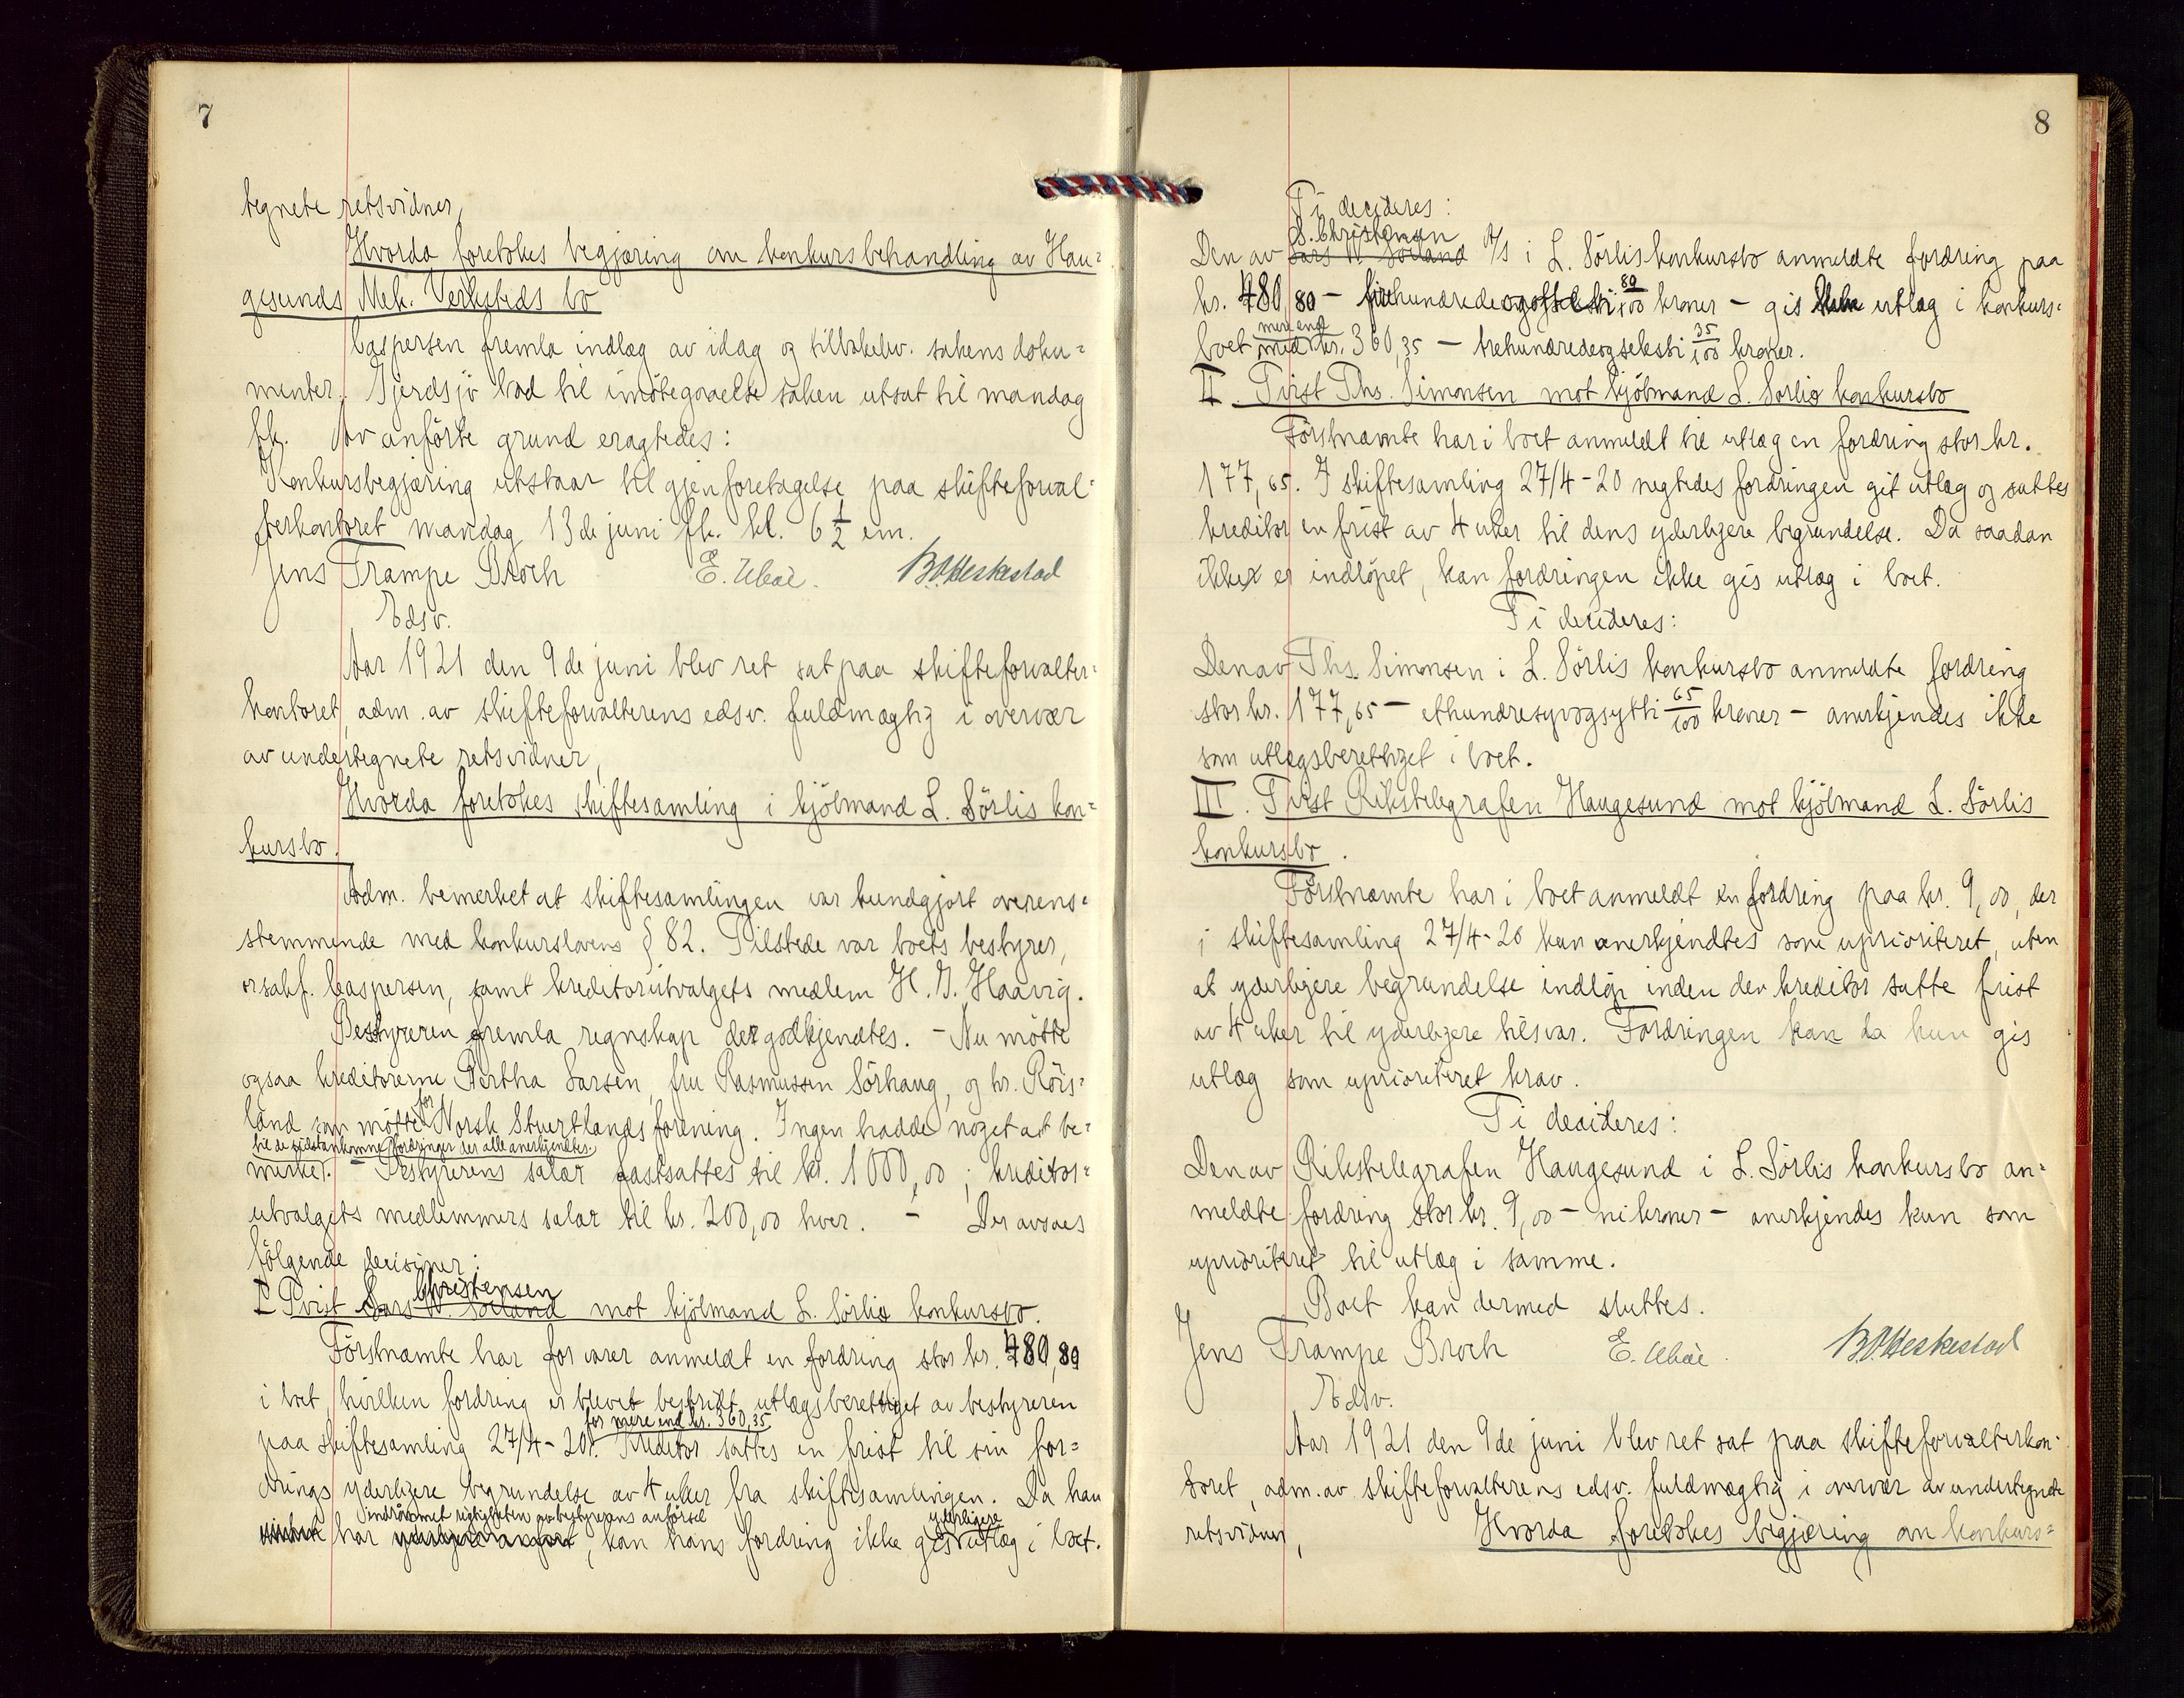 7
tegnete retsvidner,
Hvorda foretokes begjæring om konkursbehandling av Hau-
gesunds Mek. Verksteds bo
Caspersen fremla indlæg av idag og tilbakelev. sakens doku-
menter. Gjerdsjö bad til imötegaaelse saken utsat til mandag
fk. Av anförte grund eragtedes:
Konkursbegjæring utstaar til gjenforetagelse paa skifteforval-
terkontoret mandag 13de juni fk. kl. 6 1/2 em.
Jens Trampe Broch E. Ubøe. B. Heskestad
Edsv.
Aar 1921 den 9de juni blev ret sat paa skifteforvalter-
kontoret, adm. av skifteforvalterens edsv. fuldmægtig i overvær
av undertegnete retsvidner,
Hvorda foretokes skiftesamling i kjöbmand L. Sörlis kon-
kursbo.
Adm. bemerket at skiftesamlingen var kundgjort overens-
stemmende med konkurslovens § 82. Tilstede var boets bestyrer,
orsakf. Caspersen, samt kreditorutvalgets medlem H. J. Haavig.
Bestyreren fremla regnskap der godkjendtes. - Nu mötte
ogsaa kreditorerne Bertha Larsen, fru Rasmussen Sörhaug, og hr. Röis-
land som mötte for Norsk Stuertlands forening. Ingen hadde noget at be-
til de sidstankomne fordringer der alle anerkjendtes.
merke. - Bestyrerens salær fastsattes til kr. 1000,00; kreditor-
utvalgets medlemmers salær til kr. 200,00 hver. - Der avsaes
følgende decisioner:
Christensen
I Tvist Lars W. Solland mot kjöbmand L. Sörlis konkursbo.
Förstnævnte har for varer anmeldt en fordring stor kr. 480,80
i boet, hvilken fordring er blevet bestridt utlægsberettiget av bestyreren
for mere end kr. 360,35
paa skiftesamling 27/4-20. Kreditor sattes en frist til sin for-
drings yderligere begrundelse av 4 uker fra skiftesamlingen. Da han
indrömmet rigtigheten av bestyrerens anförsel yderligere
har , kan hans fordring ikke gis utlæg i boet.
8
Ti decideres:
S. Christensen
Den av Lars W. Solland A/S i L. Sörlis konkursbo anmeldte fordring paa
kr. 480,80 - firehundredeogotteti 80/100 kroner - gis ikke utlæg i konkurs-
mere end
boet med kr. 360,35 - trehundredeogseksti 35/100 kroner.
II. Tvist Ths. Simonsen mot kjöbmand L. Sörlis konkursbo
Förstnævnte har i boet anmeldt til utlæg en fordring stor kr.
177,65. I skiftesamling 27/4-20 negtedes fordringen git utlæg og sattes
kreditor en frist av 4 uker til dens yderligere begrundelse. Da saadan
ikke er indlöpet, kan fordringen ikke gis utlæg i boet.
Ti decideres:
Den av Ths. Simonsen i L. Sörlis konkursbo anmeldte fordring
stor kr. 177,65 - ethundresyvogsytti 65/100 kroner - anerkjendes ikke
som utlægsberettiget i boet.
III. Tvist Rikstelegrafen Haugesund mot kjöbmand L. Sörlis
konkursbo.
Förstnævnte har i boet anmeldt en fordring paa kr. 9,00, der
i skiftesamling 27/4-20 kun anerkjendtes som uprioriteret, uten
at yderligere begrundelse indlöp inden den kreditor satte frist
av 4 uker til yderligere tilsvar. Fordringen kan da kun gis
utlæg som uprioriteret krav.
Ti decideres:
Den av Rikstelegrafen Haugesund i L. Sörlis konkursbo an-
meldte fordring stor kr. 9,00 - ni kroner - anerkjendes kun som
uprioriteret til utlæg i samme.
Boet kan dermed sluttes.
Jens Trampe Broch E. Ubøe. B. Heskestad
Edsv.
Aar 1921 den 9de juni blev ret sat paa skifteforvalterkon-
toret, adm. av skifteforvalterens edsv. fuldmægtig i overvær av undertegnete
retsvidner, Hvorda foretokes begjæring om konkurs-